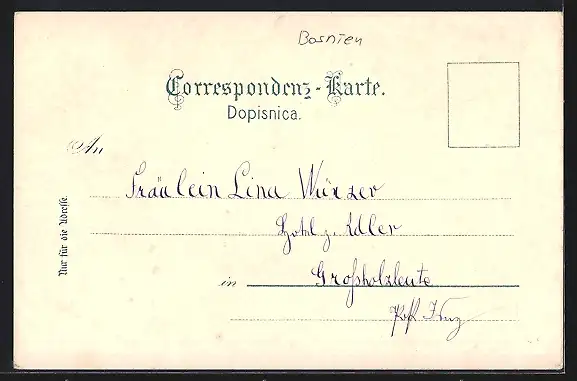 Bosnien
Correspondenz-Karte.
Dopisnica.
An
Fräulein Lina Würzer
Hotel z. Adler
Nur für die Adresse.
in Großholzleute